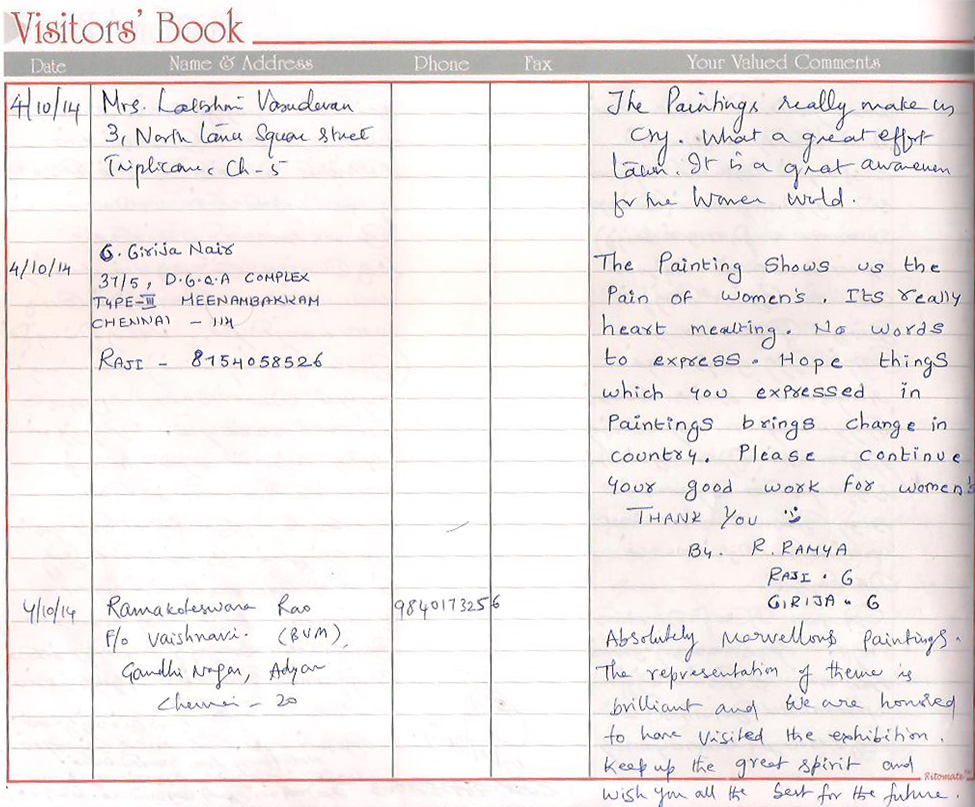 Visitors' Book
Date Name & Address Phone Fax Your Valued Comments
4/10/14 Mrs. Lakshmi Vasudevan
3, North Tank Square Street
Triplicane Ch - 5
The Paintings really make us
cry. What a great effort
taken. It is a great awareness
for the Women World.
4/10/14 G. Girija Nair
37/5, D.G.Q.A COMPLEX
TYPE-III MEENAMBAKKAM
CHENNAI - 114
RAJI - 8754058526
The Painting Shows us the
Pain of women's. Its really
heart mealting. No words
to express. Hope things
which you expressed in
Paintings brings change in
country. Please continue
your good work for women's
THANK YOU
By. R. RAMYA
RAJI. G
GIRIJA. G
4/10/14 Ramakoteswara Rao 9840173256
F/o Vaishnavi. (BVM),
Gandhi Nagar, Adyar
Chennai - 20
Absolutely Marvellous paintings.
The representation of theme is
brilliant and We are honored
to have visited the exhibition.
Keep up the great spirit and
wish you all the best for the future.
Ritomate